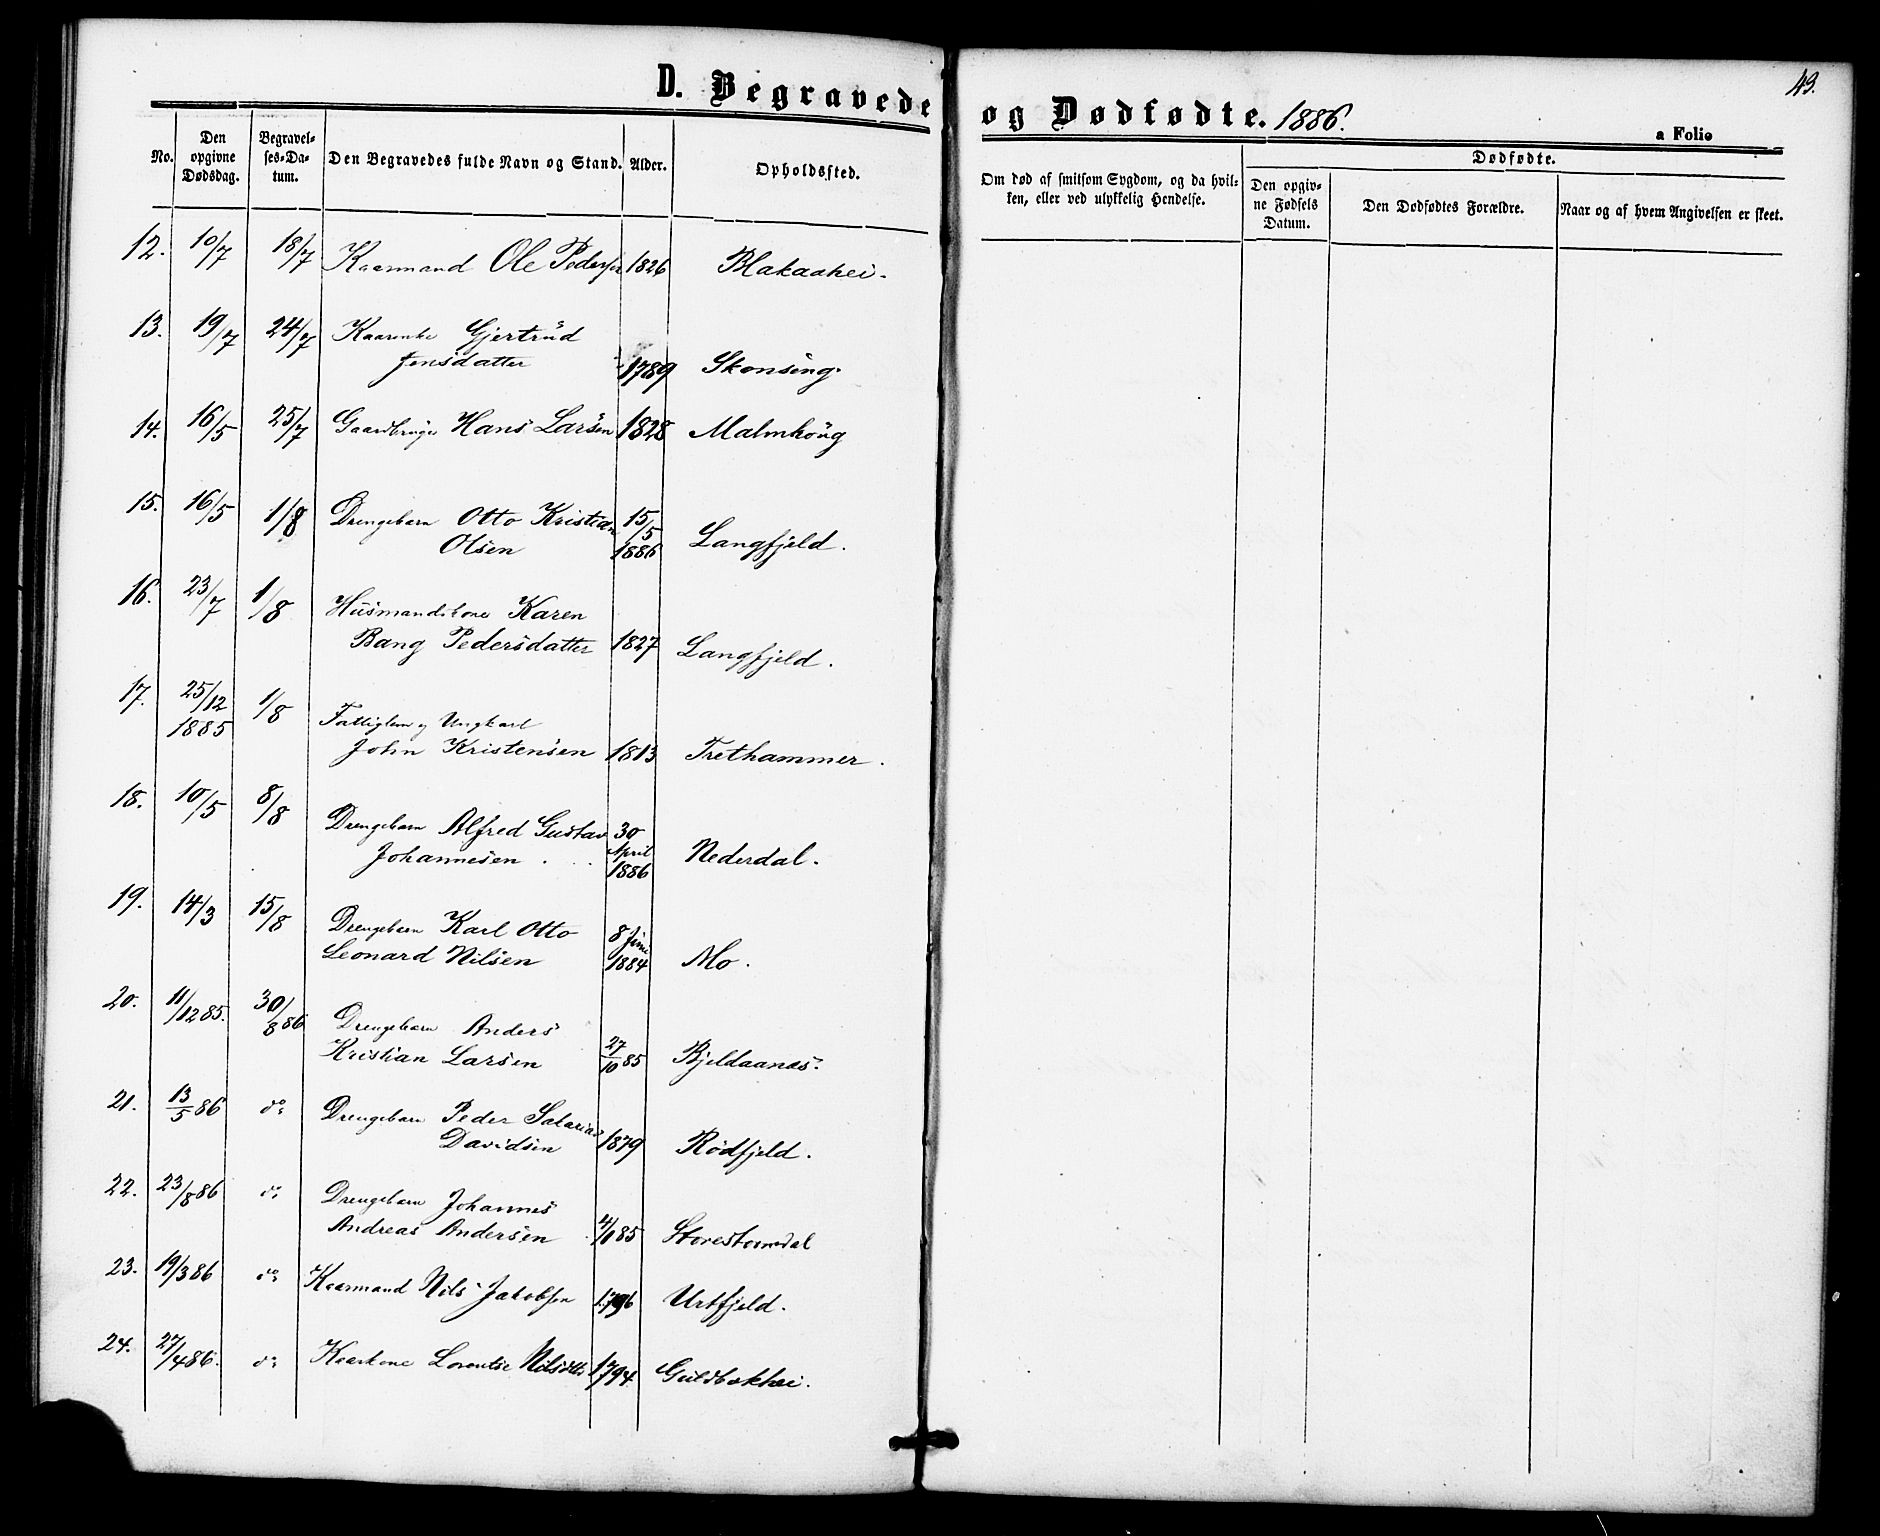 D. Begravede og Dødfødte. 1886.
49.
a Folio
No.
Den opgivne Dødsdag.
Begravel-ses-Da-tum.
Den Begravedes fulde Navn og Stand.
Alder.
Opholdssted.
Om død af smitsom Sygdom, og da hvil-ken, eller ved ulykkelig Hendelse.
Dødfødte.
Den opgiv-ne Fødsels Datum.
Den Dødfødtes Forældre.
Naar og af hvem Angivelsen er skeet.
12. 10/7 18/7 Kaarmand Ole Pedersen 1826 Blakaahei.
13. 19/7 24/7 Kaarenke Gjertrud
Jensdatter 1789 Skonseng.
14. 16/5 25/7 Gaardbruger Hans Larsen 1828 Malmhoug
15. 16/5 1/8 Drengebarn Otto Kristian 15/5
Olsen 1886 Langfjeld.
16. 23/7 1/8 Husmandskone Karen
Bang Pedersdatter 1827 Langfjeld.
17. 25/12 1/8 Fattiglem og Ungkarl
1885 John Kristensen 1813 Trethammer.
18. 10/5 8/8 Drengebarn Alfred Gustav 30 April
Johannesen. 1886 Nederdal.
19. 14/3 15/8 Drengebarn Karl Otto 8 Juni
Leonard Nilsen 1884 Mo.
20. 11/12 85. 30/8 86 Drengebarn Anders
Kristian Larsen 27/10 85 Bjeldaanes.
21. 13/5 86 do Drengebarn Peder
Davidsen 1879 Rödfjeld.
22. 23/8 86 do Drengebarn Johannes
Andreas Andersen 85 Storestormdal
23. 19/3 86 do Kaarmand Nils Jakobsen 1796 Urtfjeld.
24. 27/4 86. do Kaarkone Lorentse Nilsdtr 1794 Guldbakhei.